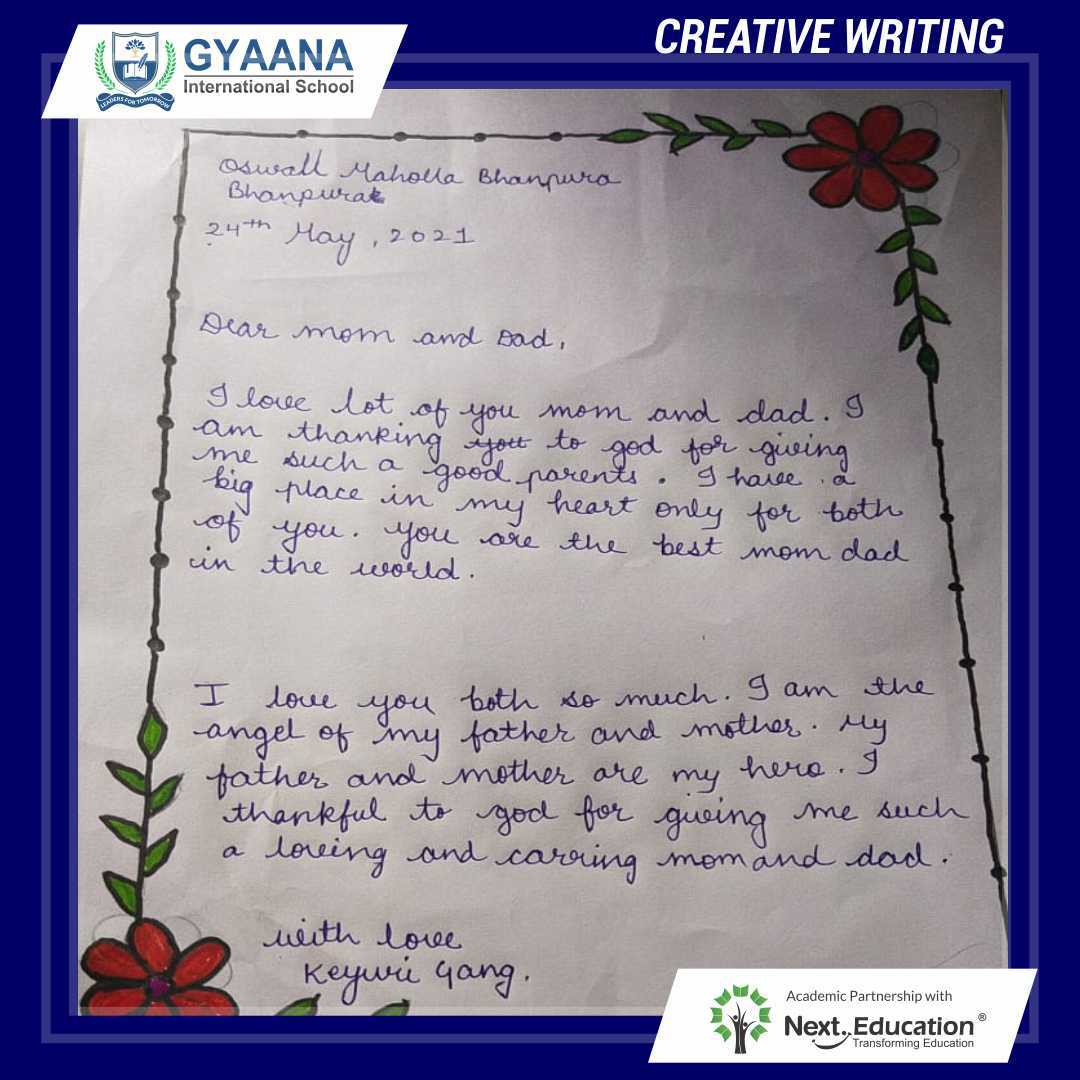 CREATIVE WRITING
GYAANA
International School
LEADERS FOR TOMORROW
Oswall Maholla Bhanpura
Bhanpura
24th May, 2021
Dear mom and Dad,
I love lot of you mom and dad. I
am thanking you to god for giving
me such a good parents. I have a
big place in my heart only for both
of you. You are the best mom dad
in the world.
I love you both so much. I am the
angel of my father and mother. My
father and mother are my hero. I
thankful to god for giving me such
a loving and carring mom and dad.
with love
Keywri Gang.
Academic Partnership with
Next Education®
Transforming Education